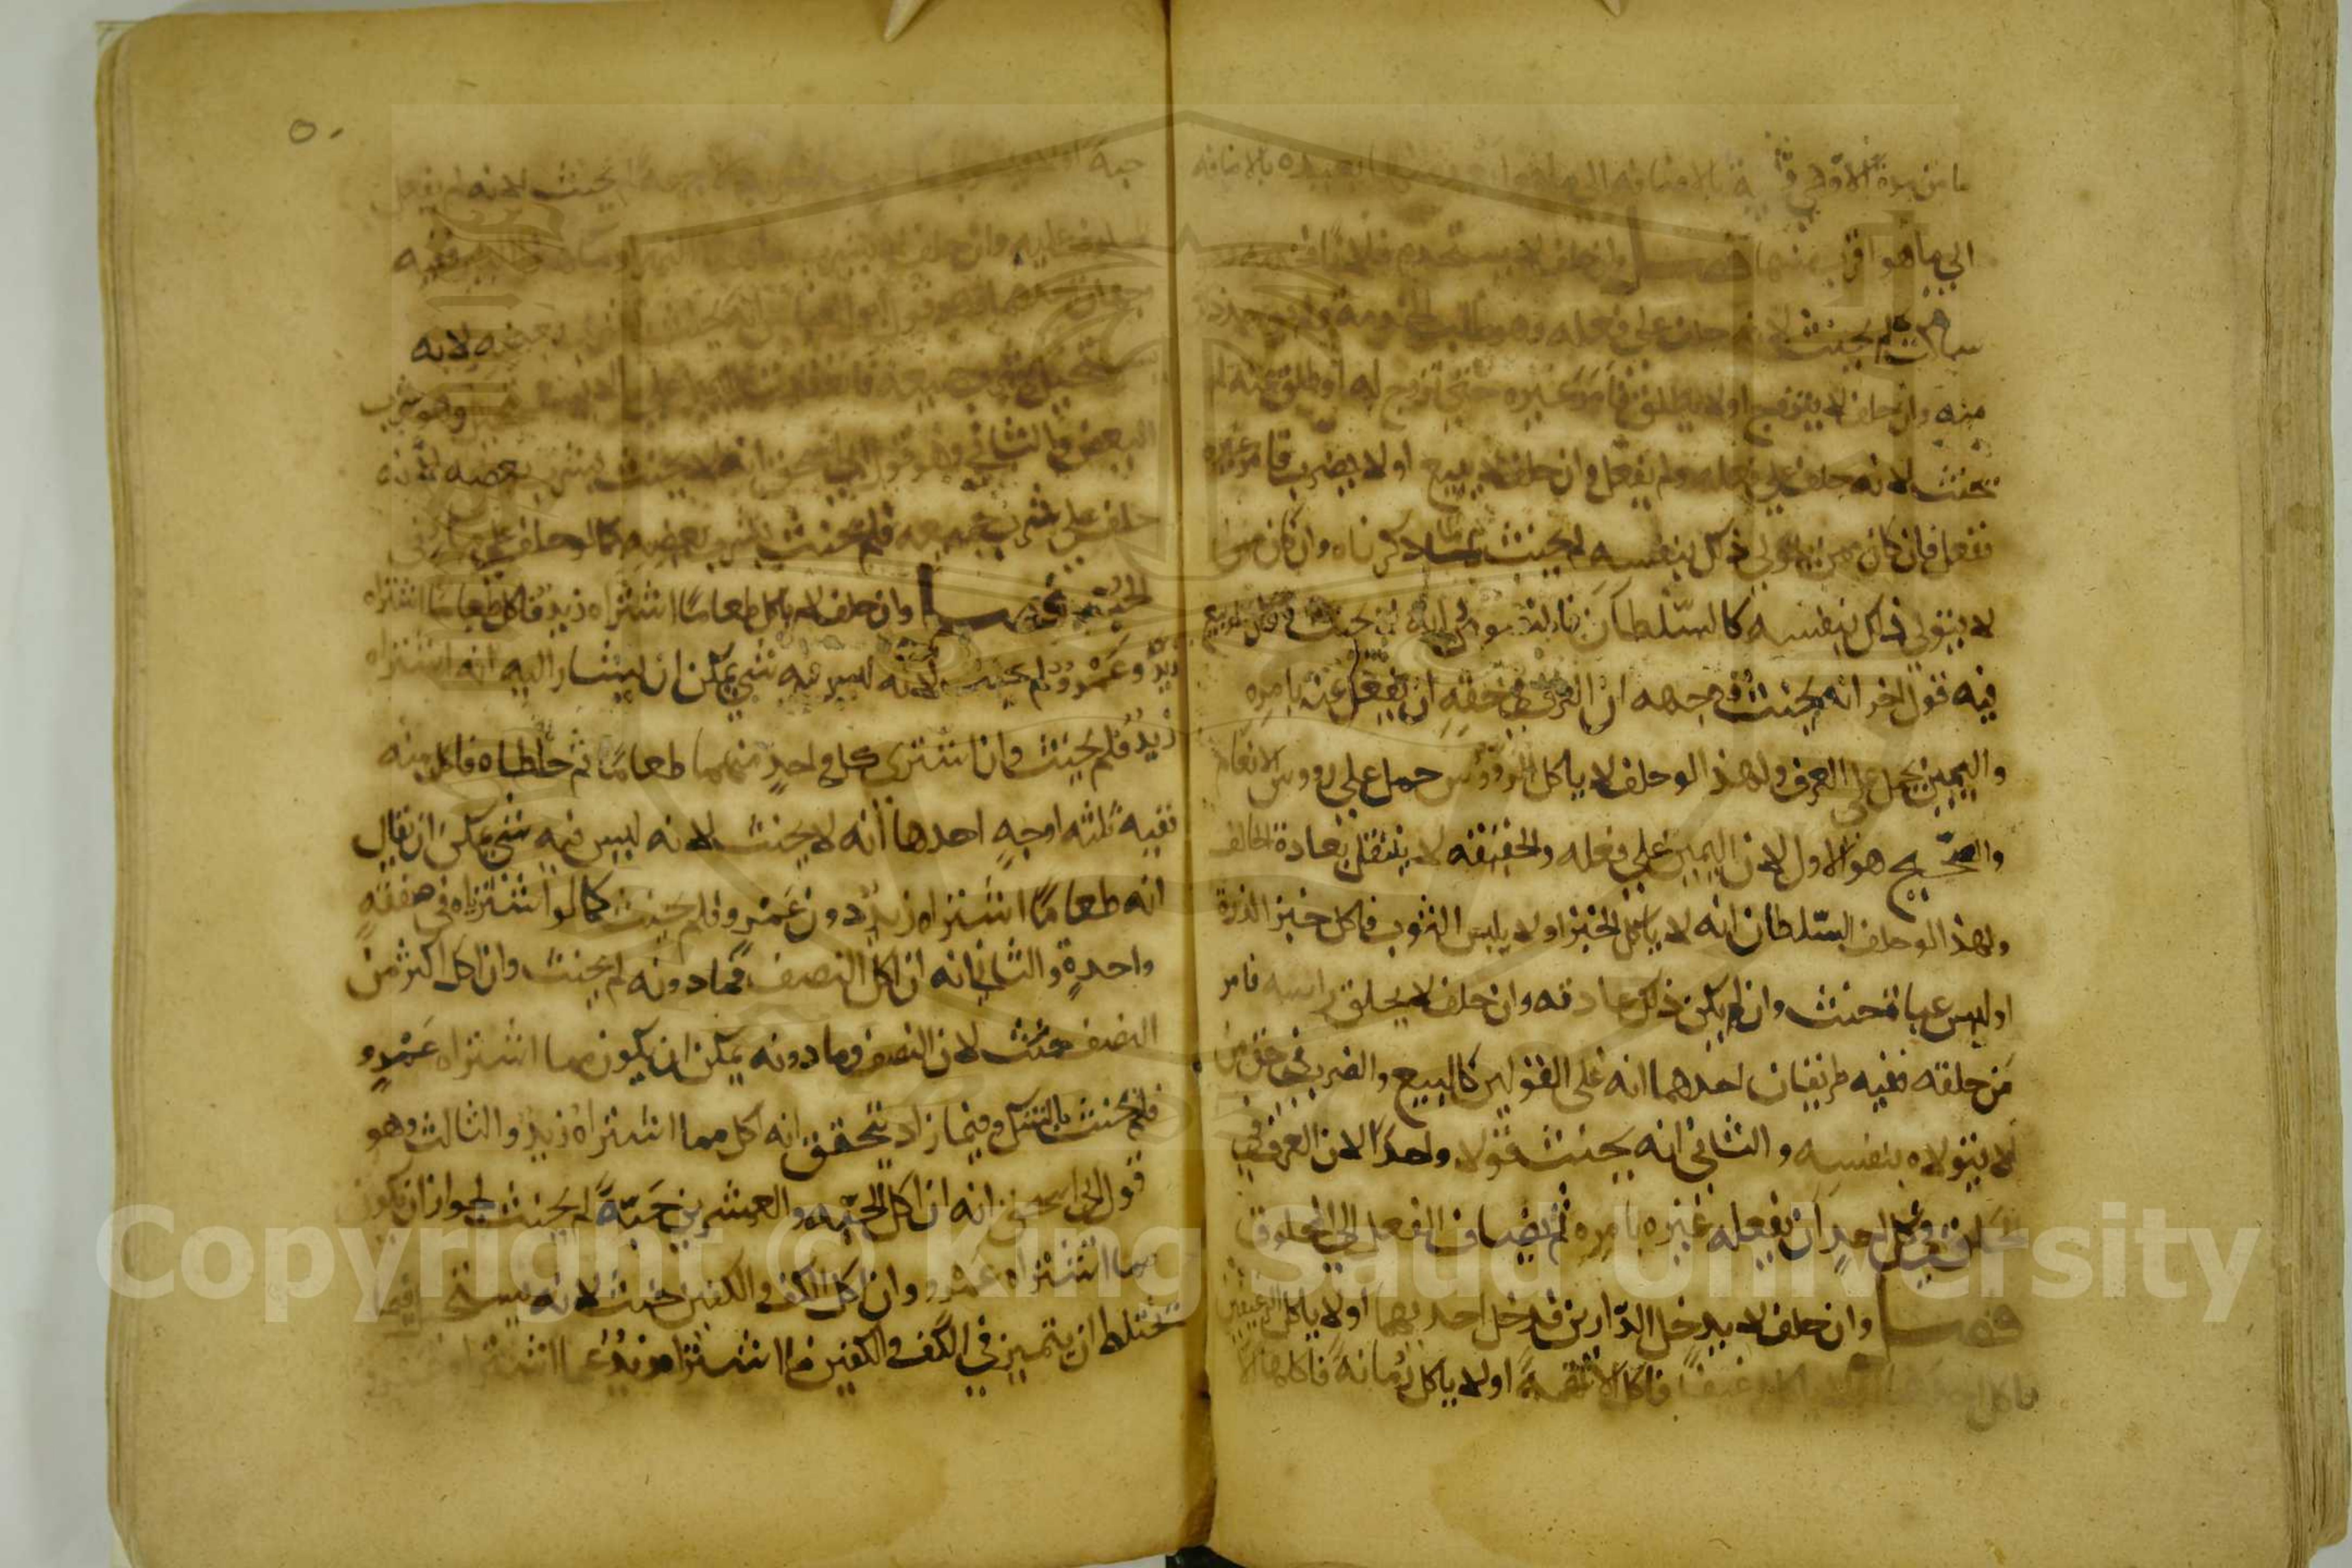 الي ما هو اقرب منها فصل وان حلف لا يستخدم فلانا
ساكت لم يحنث لانه حلف علي فعله وهو طلب الخدمة ولم يوجد ذلك
منه وان حلف لا يتزوج او لا يطلق فامر غيره حتي تزوج له او طلق عنه لم
يحنث لانه حلف علي فعله ولم يفعل وان حلف لا يبيع او لا يضرب فامر غيره
ففعل فان كان ممن يتولي ذلك بنفسه لم يحنث لما ذكرناه وان كان ممن
لا يتولي ذلك بنفسه كالسلطان فالمنصوص انه لا يحنث وقال الربيع
فيه قول اخر انه يحنث ووجهه ان العرف في حقه ان يفعل عنه بامره
واليمين يحمل علي العرف ولهذا لو حلف لا ياكل الرووس حمل علي رووس الانعام
والصحيح هو الاول لان اليمين علي فعله والحقيقه لا ينتقل بعادة الحالف
ولهذا لو حلف السلطان انه لا ياكل الخبز او لا يلبس الثوب فاكل خبز الذرة
او لبس عباة حنث وان لم يكن ذلك عادته وان حلف لا يحلق راسه فامر
من حلقه ففيه طريقان احدهما انه علي القولين كالبيع والضرب في حق من
لا يتولاه بنفسه والثاني انه يحنث قولا واحدا لان العرف في
الحلق في كل احد ان يفعله غيره بامره ثم يضاف الفعل الي المحلوق
فصل وان حلف لا يدخل الدارين فدخل احديهما او لا ياكل الرغيفين
فاكل الا لقمة او لا ياكل رمانة فاكلها الا
حبة لم يحنث لانه لم يفعل
المحلوف عليه وان حلف لا يشرب ففيه
وجهان احدهما وهو قول ابي العباس انه يحنث بشرب بعضه لانه
يستحيل شرب جميعه فانعقدت اليمين علي وهو شرب
البعض والثاني وهو قول ابي اسحق انه لا يحنث بشرب بعضه لانه
حلف علي شرب جميعه فلم يحنث بشرب بعضه كما لو حلف علي ما في
الجب فصل وان حلف لا ياكل طعاما اشتراه زيد فاكل طعاما اشتراه
زيد وعمرو لم يحنث لانه ليس فيه شي يمكن ان يشار اليه انه اشتراه
زيد فلم يحنث وان اشترى كل واحد منهما طعاما ثم خلطاه فاكل منه
ففيه ثلثه اوجه احدها انه لا يحنث لانه ليس فيه شي يمكن ان يقال
انه طعاما اشتراه زيد دون عمرو فلم يحنث كما لو اشترياه في صفقة
واحدة والثاني انه ان اكل النصف فما دونه لم يحنث وان اكل اكثر من
النصف حنث لان النصف وما دونه يمكن ان يكون مما اشتراه عمرو
فلم يحنث بالشك وفيما زاد يتحقق انه اكل مما اشتراه زيد والثالث وهو
قول ابي اسحق انه ان اكل الحبه والعشرين حبة لم يحنث لجواز ان يكون
مما اشتراه عمرو وان اكل الكف والكفين حنث لانه يستحيل فيما
يختلط ان يتميز في الكف والكفين ما اشتراه زيد عما اشتراه
٥٠
Copyright © King Saud University